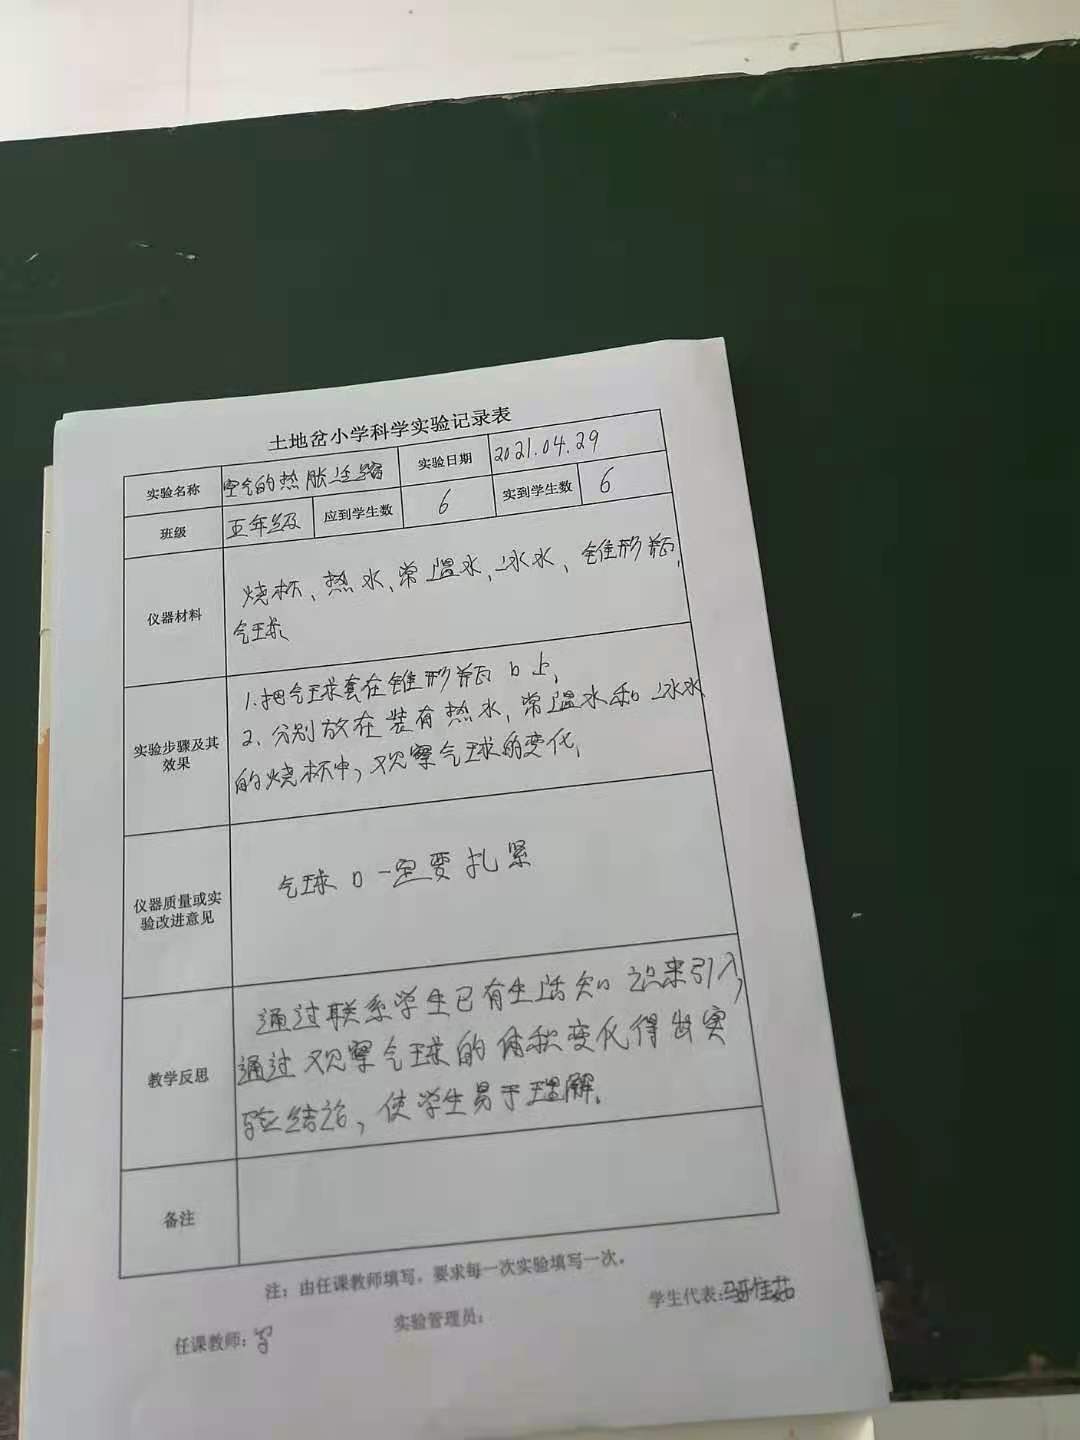 土地岔小学科学实验记录表
实验名称 空气的热胀冷缩 实验日期 2021.04.29
班级 五年级 应到学生数 6 实到学生数 6
仪器材料
烧杯、热水、常温水、冰水、锥形瓶、
气球、
实验步骤及其
效果
1.把气球套在锥形瓶口上,
2.分别放在装有热水,常温水和冰水
的烧杯中,观察气球的变化,
仪器质量或实
验改进意见
气球口一定要扎紧
教学反思
通过联系学生已有生活知识来引入,
通过观察气球的体积变化得出实
验结论,使学生易于理解。
备注
注:由任课教师填写,要求每一次实验填写一次。
任课教师: 实验管理员: 学生代表: